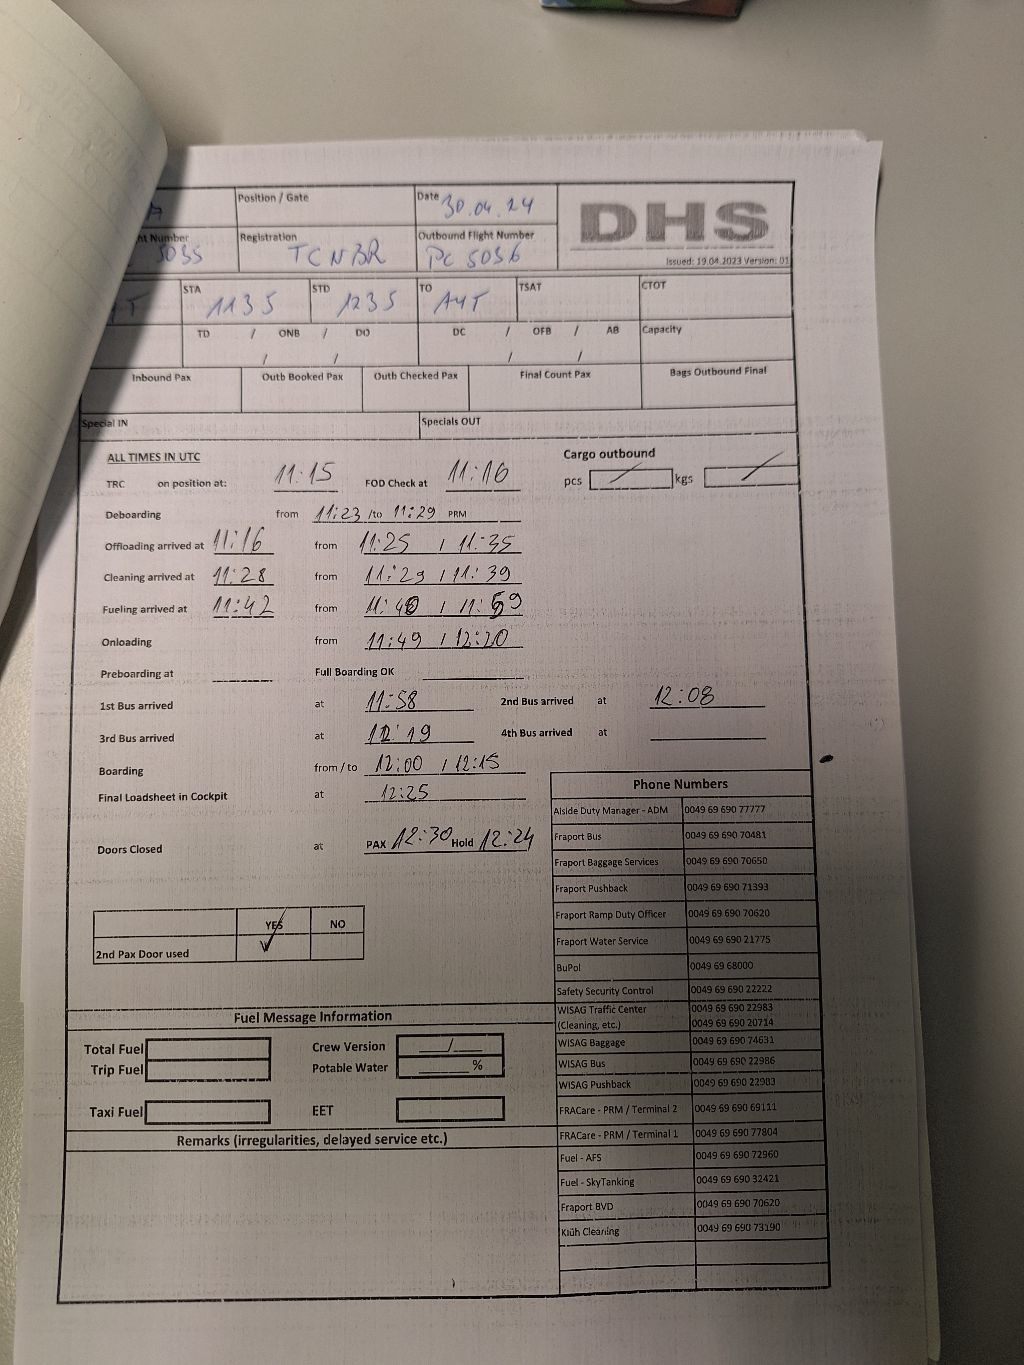 Position / Gate
Date 30.04.24
DHS
ht Number 5035
Registration TCNBR
Outbound Flight Number PC 5036
Issued: 19.04.2023 Version: 01
STA 1135
STD 1235
TO AYT
TSAT
CTOT
TD / ONB / DO
DC / OFB / AB
Capacity
/ /
/ /
Inbound Pax
Outb Booked Pax
Outb Checked Pax
Final Count Pax
Bags Outbound Final
Special IN
Specials OUT
ALL TIMES IN UTC
Cargo outbound
TRC on position at: 11:15 FOD Check at 11:16
pcs / kgs /
Deboarding from 11:23 /to 11:29 PRM
Offloading arrived at 11:16 from 11:25 / 11:35
Cleaning arrived at 11:28 from 11:29 / 11:39
Fueling arrived at 11:42 from / 11:59
Onloading from 11:49 / 12:20
Preboarding at Full Boarding OK
1st Bus arrived at 11:58 2nd Bus arrived at 12:08
3rd Bus arrived at 12:19 4th Bus arrived at
Boarding from / to 12:00 / 12:15
Final Loadsheet in Cockpit at 12:25
Doors Closed at PAX 12:30 Hold 12:24
YES NO
2nd Pax Door used
Fuel Message Information
Total Fuel
Crew Version /
Trip Fuel
Potable Water %
Taxi Fuel
EET
Remarks (irregularities, delayed service etc.)
Phone Numbers
Aiside Duty Manager - ADM 0049 69 690 77777
Fraport Bus 0049 69 690 70481
Fraport Baggage Services 0049 69 690 70650
Fraport Pushback 0049 69 690 71393
Fraport Ramp Duty Officer 0049 69 690 70620
Fraport Water Service 0049 69 690 21775
BuPol 0049 69 68000
Safety Security Control 0049 69 690 22222
WISAG Traffic Center 0049 69 690 22983
(Cleaning, etc.) 0049 69 690 20714
WISAG Baggage 0049 69 690 74631
WISAG Bus 0049 69 690 22986
WISAG Pushback 0049 69 690 22983
FRACare - PRM / Terminal 2 0049 69 690 69111
FRACare - PRM / Terminal 1 0049 69 690 77804
Fuel - AFS 0049 69 690 72960
Fuel - SkyTanking 0049 69 690 32421
Fraport BVD 0049 69 690 70620
Klüh Cleaning 0049 69 690 73190